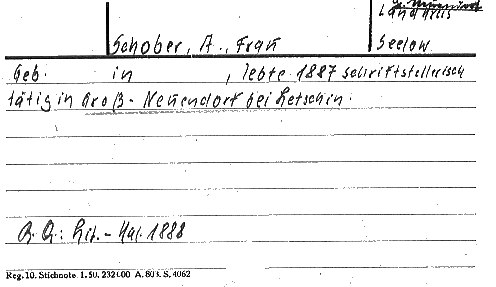 Landkreis
Schober, A., Frau
Seelow.
Geb. in , lebte 1887 schriftstellerisch
tätig in Groß-Neuendorf bei Letschin.
B. Q.: Lit.-Kal. 1888
Reg. 10. Stichnote. 1. 50. 232400 A. 803. S. 4062